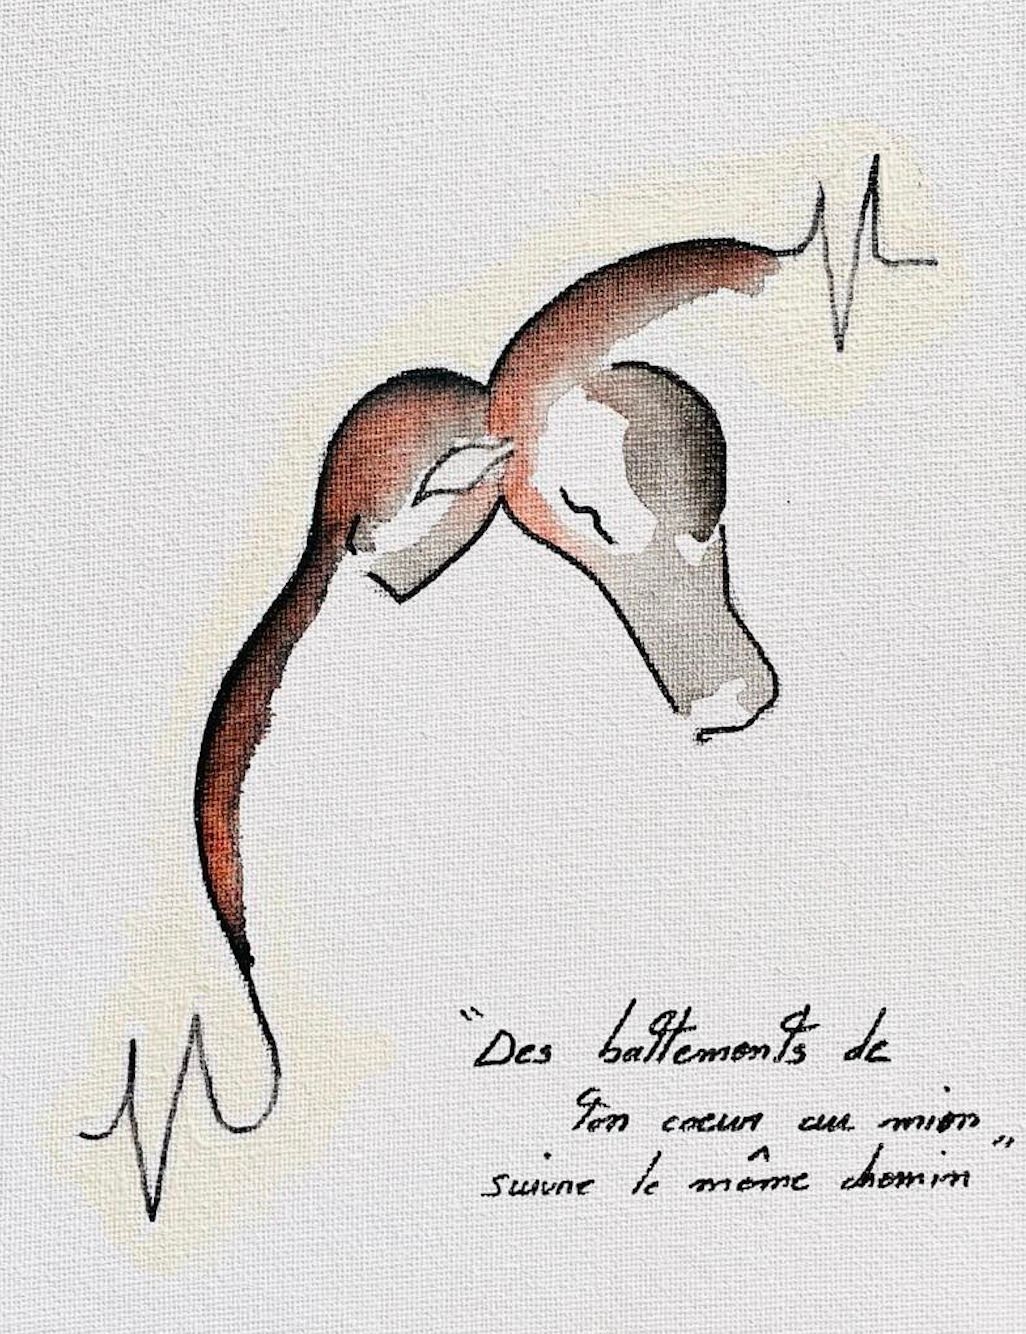 "Des battements de
ton coeur au mien
suivre le même chemin"